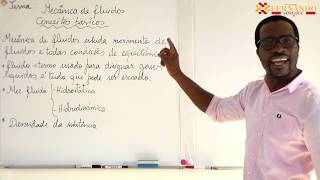 Tema Mecânica de fluidos
Conceitos básicos
Mecânica de fluidos estuda movimento de
fluidos e todas condições de equilíbrio
• fluido = termo usado para designar gases
líquidos é tudo que pode ser escoado.
• Mec fluidos Hidrostática
Hidrodinâmica
• Densidade da substância
FERNANDO